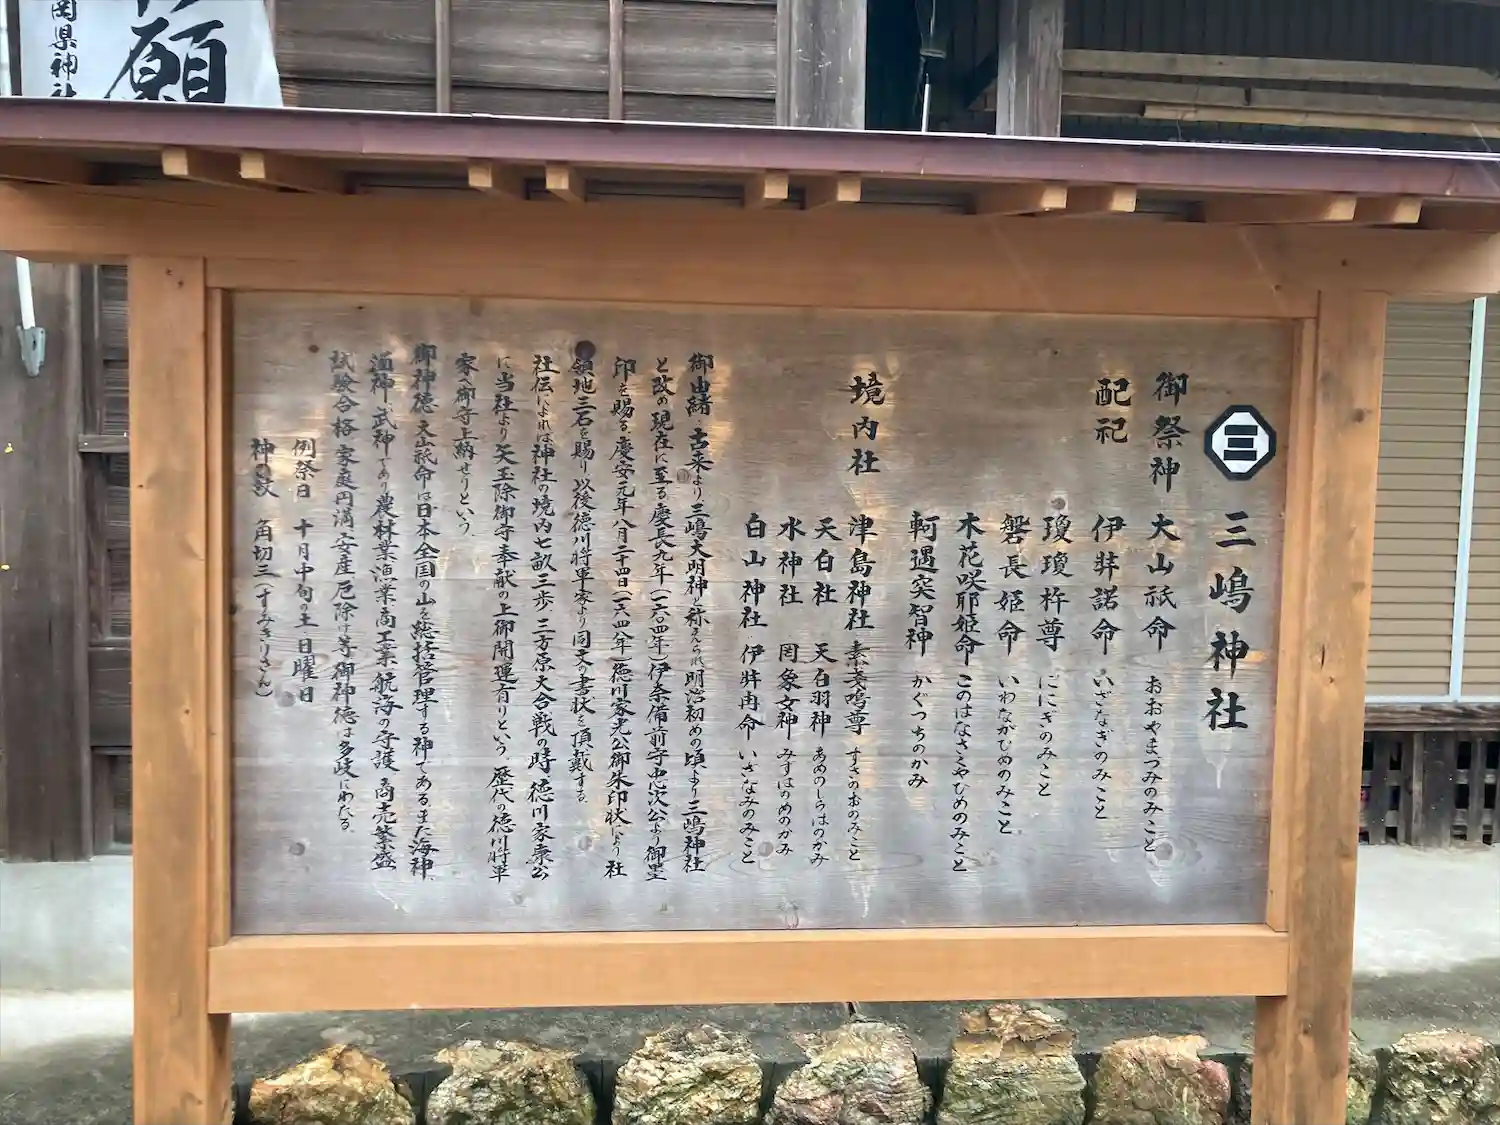 三嶋神社
御祭神 大山祇命 おおやまつみのみこと
配祀 伊弉諾命 いざなぎのみこと
瓊瓊杵尊 ににぎのみこと
磐長姫命 いわながひめのみこと
木花咲耶姫命 このはなさくやひめのみこと
軻遇突智神 かぐつちのかみ
境内社 津島神社 素戔嗚尊 すさのおのみこと
天白社 天白羽神 あめのしらはのかみ
水神社 罔象女神 みずはのめのかみ
白山神社 伊弉冉命 いざなみのみこと
御由緒 古来より三嶋大明神と称えられ明治初めの頃より三嶋神社
と改め現在に至る 慶長九年(一六〇四年)伊奈備前守忠次公より御墨
印を賜る 慶安元年八月二十四日(一六四八年)徳川家光公御朱印状により社
領地三石を賜り以後徳川将軍家より同文の書状を頂戴する。
社伝によれば神社の境内七畝三歩 三方原大合戦の時 徳川家康公
に当社より矢玉除御守奉献の上御開運有りという。歴代の徳川将軍
家へ御守上納せりという。
御神徳 大山祇命は日本全国の山を総括管理する神であるまた海神、
酒神 武神であり農林業漁業商工業航海の守護 商売繁盛
試験合格 家庭円満 安産 厄除け等 御神徳は多岐にわたる。
例祭日 十月中旬の土、日曜日
神紋 角切三(すみきりさん)
岡県神社
願